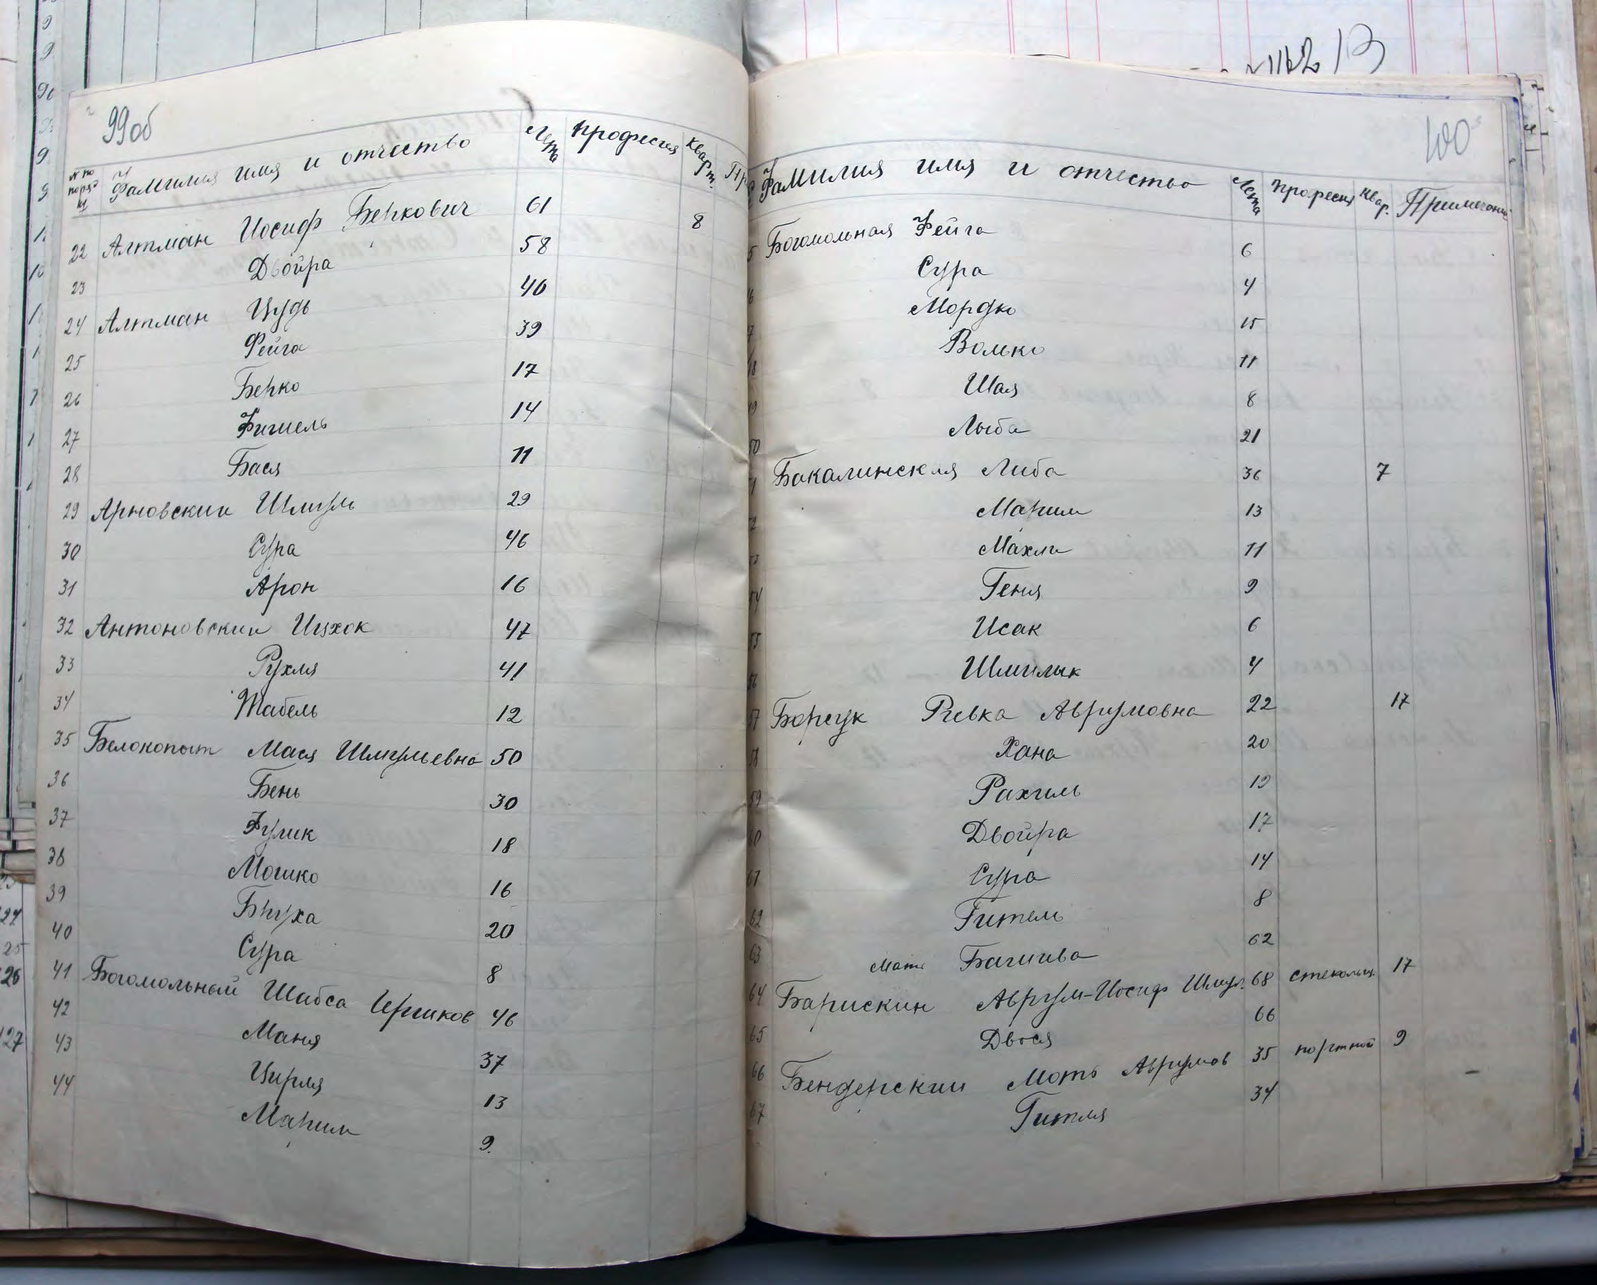 99 об
№ по поряд Фамилия имя и отчество Лета Професия Кварт.
22 Алтман Иосиф Беркович 61 8
23 Двойра 58
24 Алтман Цудь 40
25 Фейга 39
26 Берко 17
27 Фишель 14
28 Бася 11
29 Арновский Шмуль 29
30 Сура 46
31 Арон 16
32 Антоновский Ицхок 47
33 Рухля 41
34 Шабель 12
35 Белокопыт Мася Шмульевна 50
36 Бень 30
37 Фулик 18
38 Мошко 16
39 Бруха 20
40 Сура 8
41 Богомольный Шабса Иршков 46
42 Маня 37
43 Цирля 13
44 Марим 9
100
Фамилия имя и отчество Лета Професия Квар. Примечание
Богомольная Фейга 6
Сура 4
Мордко 15
Волько 11
Шая 8
Лыба 21
Бакалинская Либа 36 7
Марим 13
Махля 11
Геня 9
Исак 6
Шмилык 4
Борсук Ривка Аврумовна 22 17
Хана 20
Рахиль 19
60 Двойра 17
61 Сура 14
62 Гитель 8
63 мать Башива 62
64 Барискин Аврум-Иосиф Шмул. 68 стекольщ 17
65 Двося 66
66 Бендерский Моть Аврумов 35 портной 9
67 Гитля 34